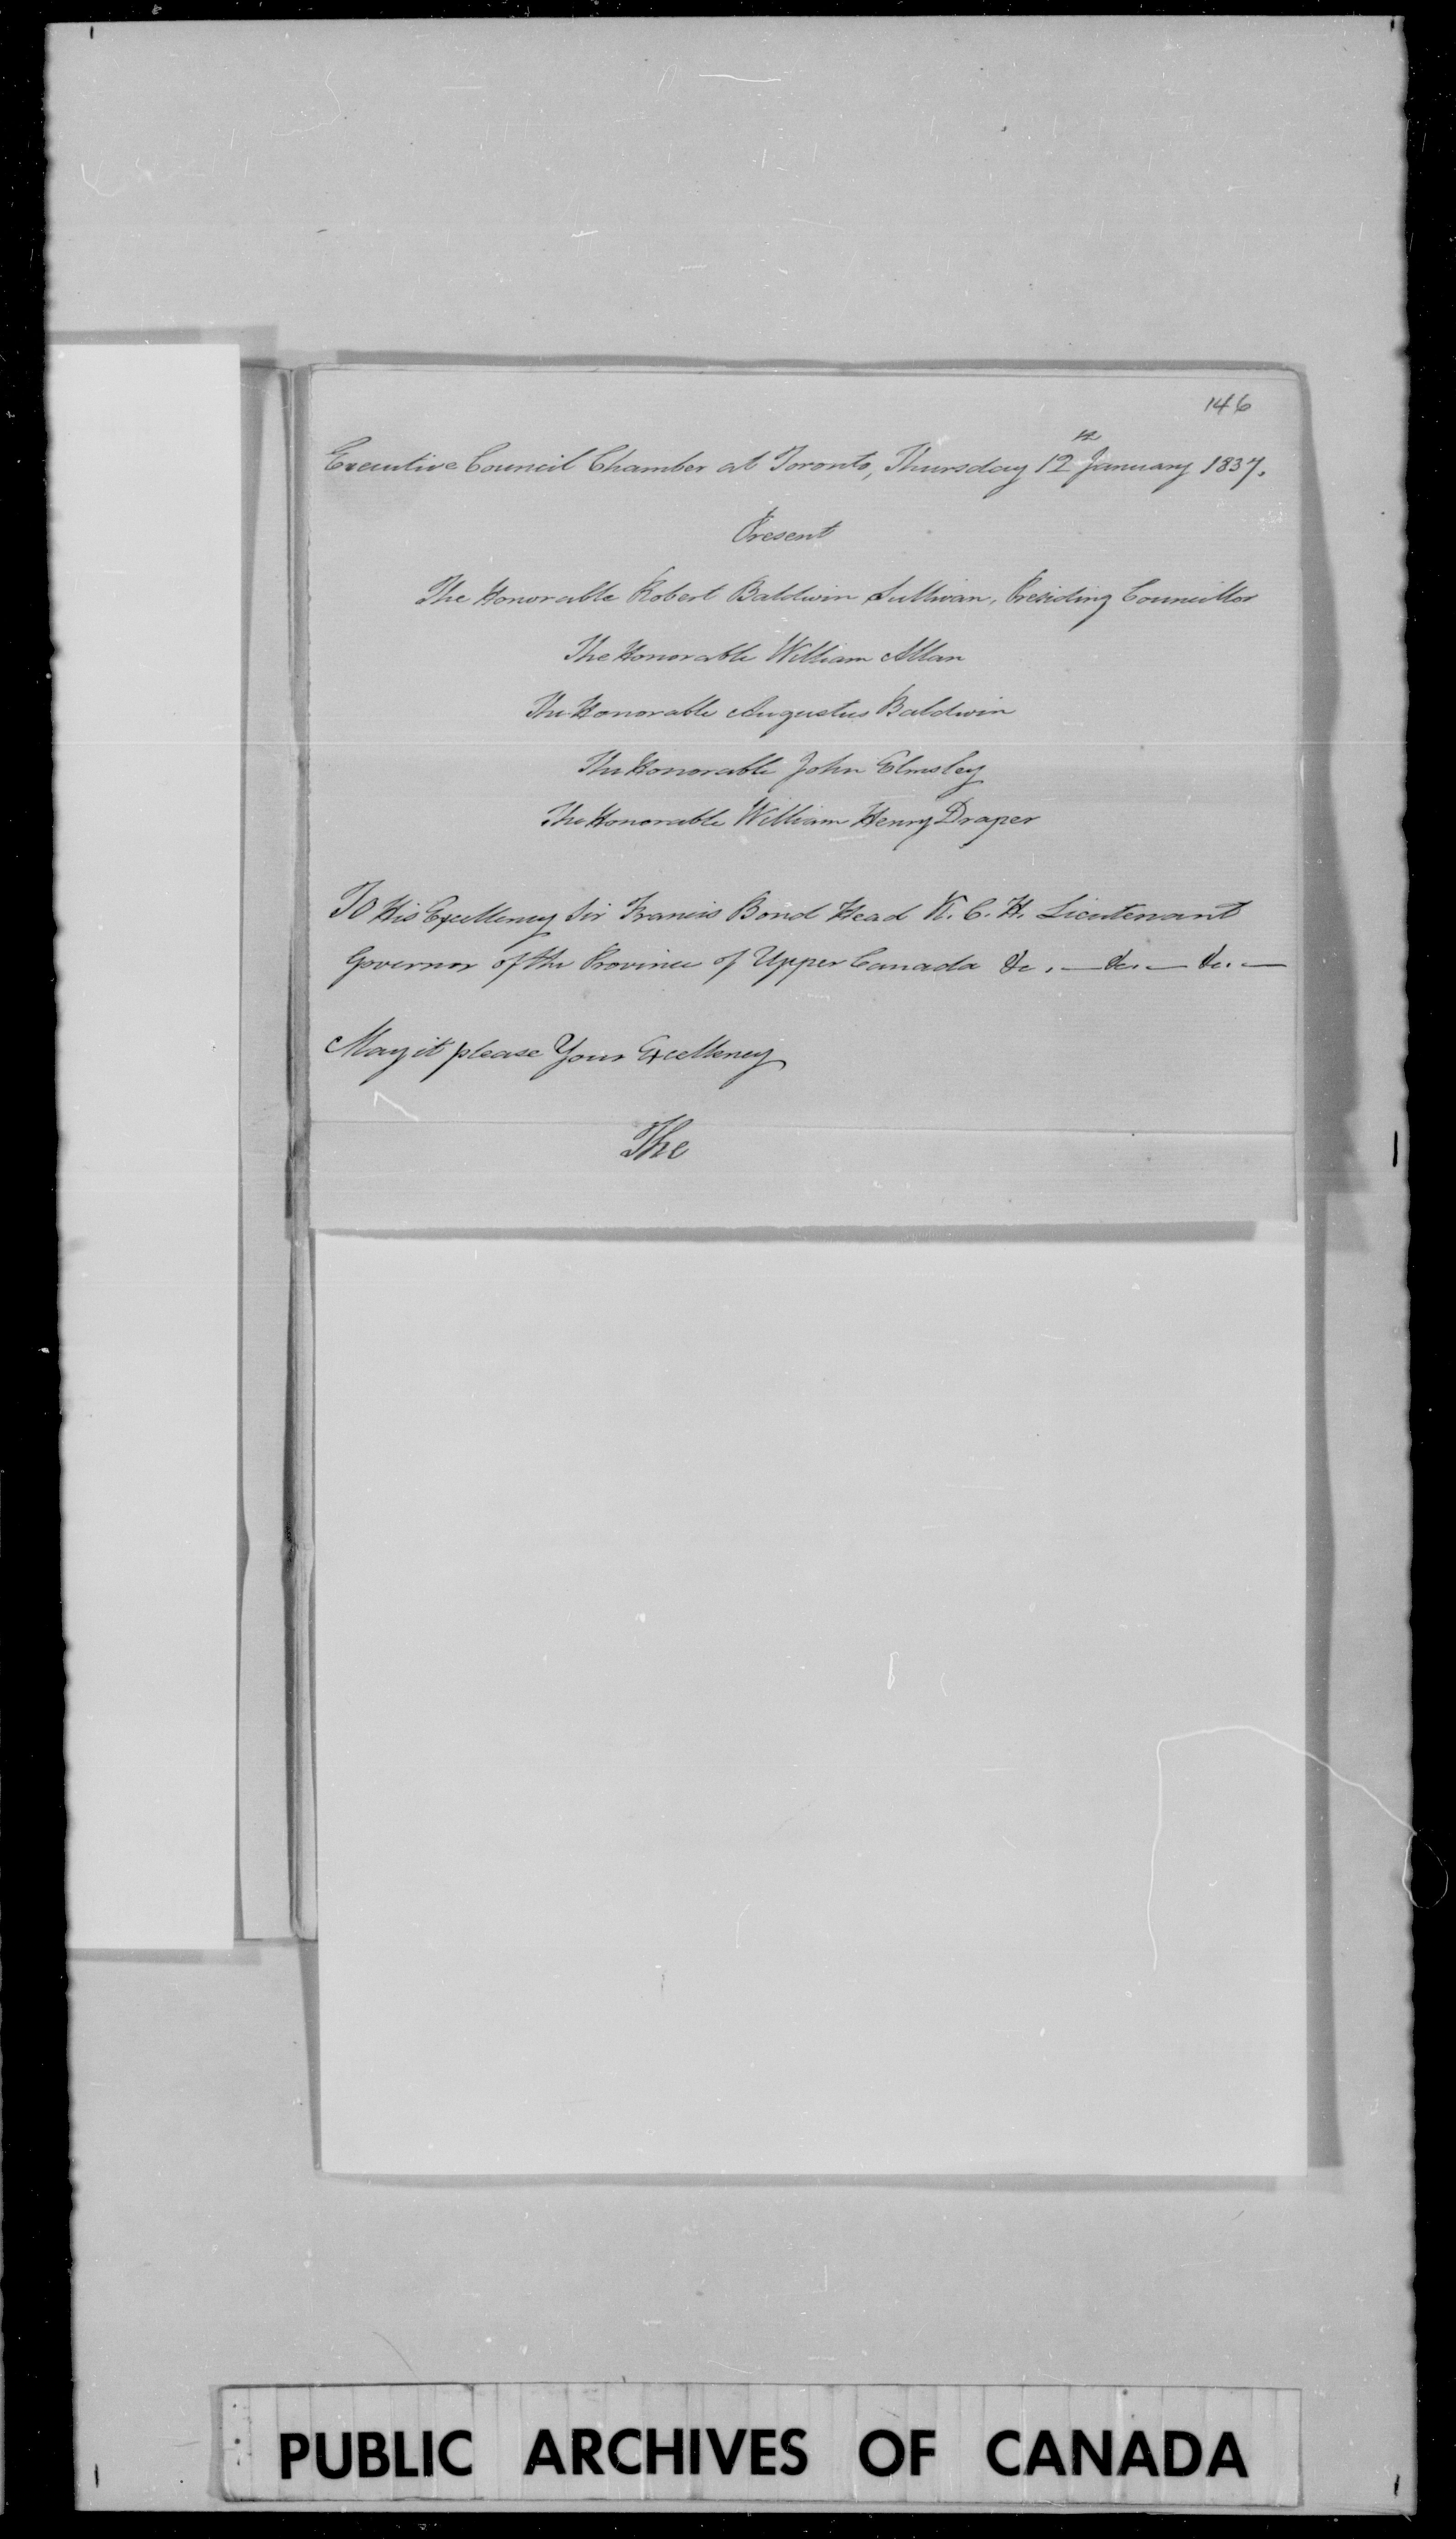 146
Executive Council Chamber at Toronto, Thursday 12th January 1837.
Present
The Honorable Robert Baldwin Sullivan, Presiding Councillor
The Honorable William Allan
The Honorable Augustus Baldwin
The Honorable John Elmsley
The Honorable William Henry Draper
To His Excellency Sir Francis Bond Head K. C. H. Lieutenant
Governor of the Province of Upper Canada &c. — &c. — &c. —
May it please Your Excellency
The
PUBLIC ARCHIVES OF CANADA